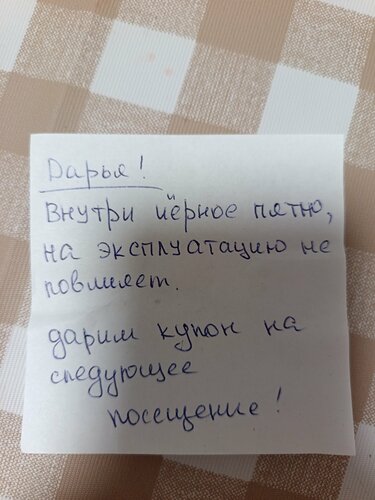 Дарья!
Внутри чёрное пятно,
на эксплуатацию не
повлияет.
дарим купон на
следующее
посещение!